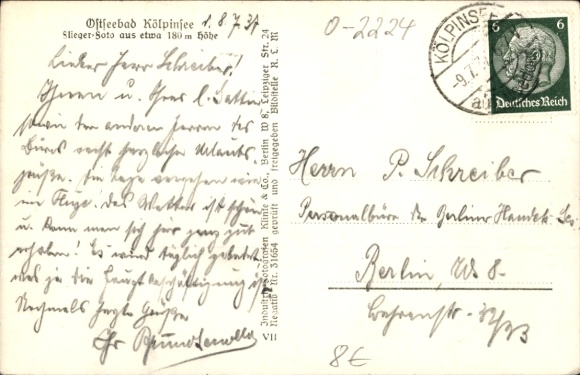 Ostseebad Kölpinsee
Flieger-Foto aus etwa 180 m Höhe
8.7.37
O-2224
KÖLPINSEE
-9.7.
auf
6 6
Deutsches Reich
Lieber Herr Schreiber!
Ihnen u. Ihrer l. Gattin
sowie den anderen Herren des
Büros recht herzliche Urlaubs
grüße. Die Tage vergehen wie
im Fluge. Das Wetter ist schön
u. kann man sich hier ganz gut
erholen! Es wird täglich gebadet
was ja die Hauptbeschäftigung ist
Nochmals herzl. Grüße
Ihr
Industrie-Fotografen Klinke & Co., Berlin W 8, Leipziger Str. 24
Negativ Nr. 31654 geprüft und freigegeben Bildstelle R. L. M.
VII
Herrn P. Schreiber
Personalbüro der Berliner Handels-Ges.
Berlin, W 8.
Behrenstr. 32/33
8€